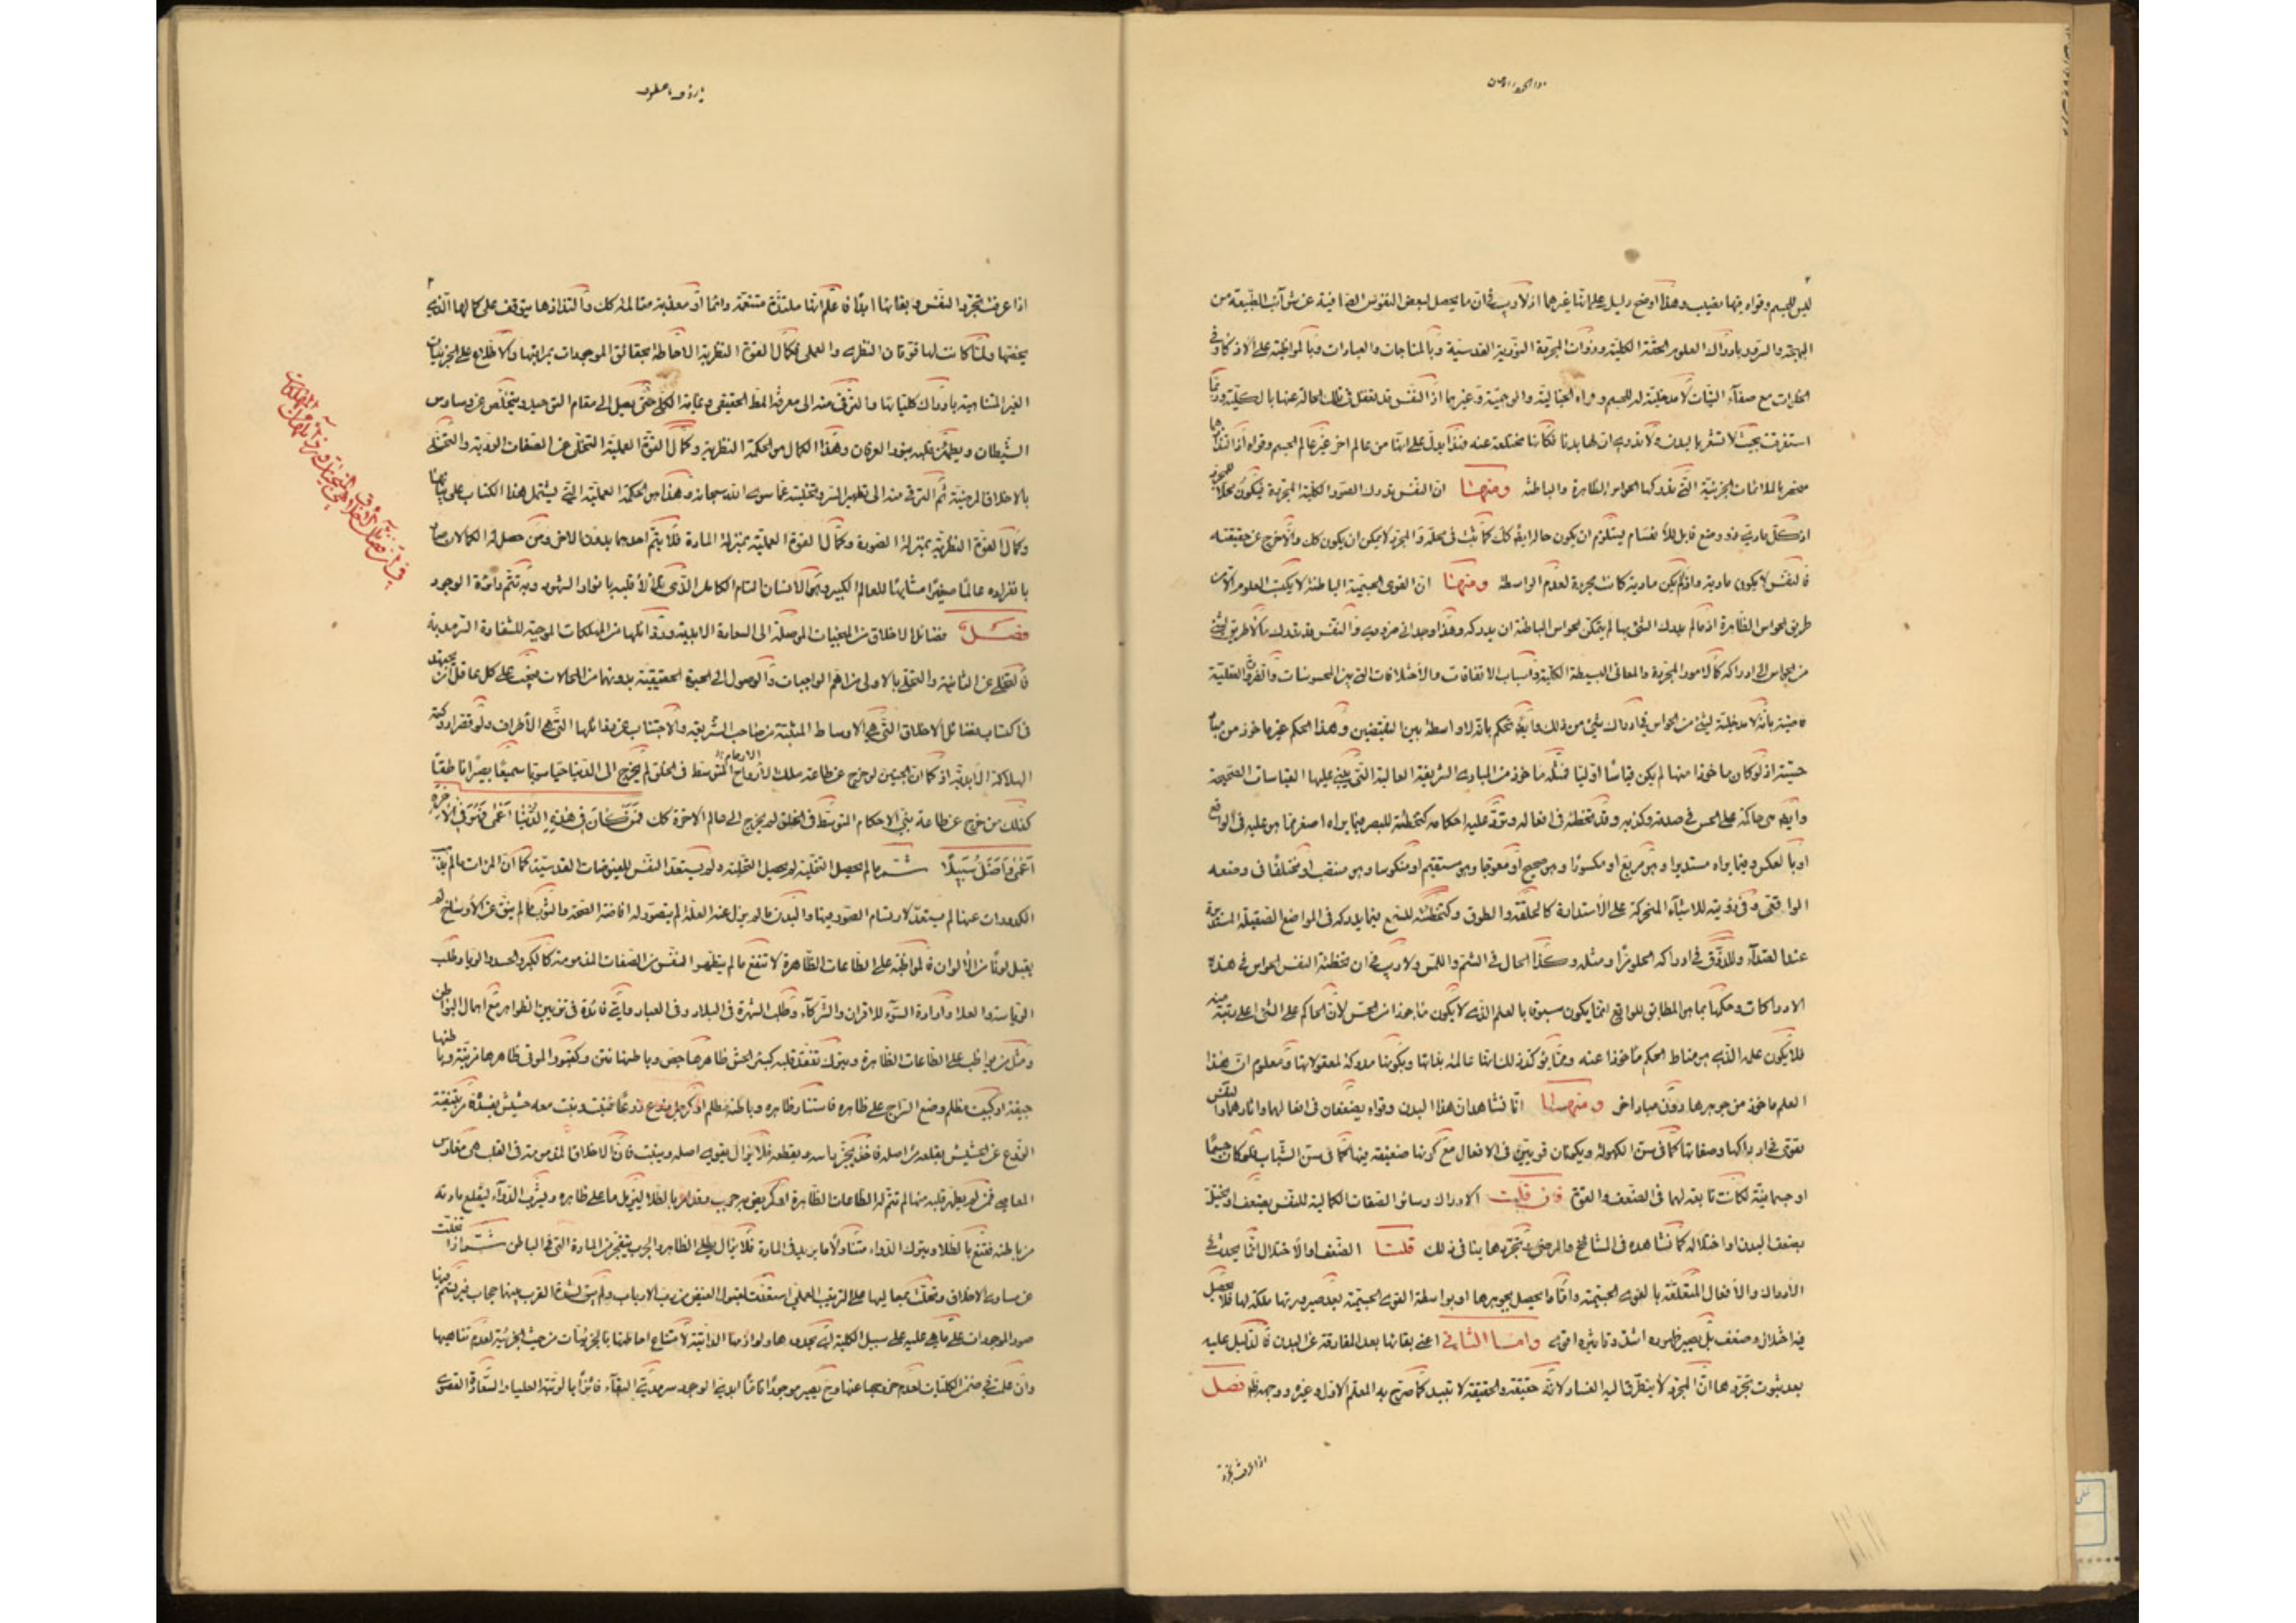 ليس للجسم وقواه فيها نصيب وهذا اوضح دليل على انها غيرهما اذ لا ريب في ان ما يحصل لبعض النفوس الصافية عن شوائب الطبيعة من
البهجة والسرور بادراك العلوم الحقة الكلية وذوات المجردة النورية القدسية وبالمناجات والعبادات وبالمواظبة على الاذكار في
الخلوات مع صفاء النيات لا مدخلية له للجسم وقواه الخيالية والوهمية وغيرهما اذ النفس قد تغفل في تلك الحالة عنها بالكلية وربما
استغرقت بحيث لا تشعر بالبدن ولا تدري ان لها بدنا فكانها منخلعة عنه فهذا يدل على انها من عالم اخر غير عالم الجسم وقواه اذ التذاذهما
منحصر بالملائمات الجزئية التي تدركها الحواس الظاهرة والباطنة ومنها ان النفس تدرك الصور الكلية المجردة فيكون محلا لها
اذ كل مادي ذو وضع قابل للانقسام يستلزم ان يكون حاله ايضا كك كما ثبت في محله والمجرد لا يمكن ان يكون كك والا خرج عن حقيقته
فالنفس لا يكون مادية واذ لم يكن مادية كانت مجردة لعدم الواسطة ومنها ان القوى الجسمية الباطنة لا يكتسب العلوم الا من
طريق الحواس الظاهرة اذ ما لم يدرك الشئ بها لم يتمكن الحواس الباطنة ان يدركه وهذا وجداني ضروري والنفس قد تدرك ما لا طريق لشئ
من الحواس الى ادراكه كالامور المجردة والمعاني البسيطة الكلية واسباب الاتفاقات والاختلافات التي بين المحسوسات والضرورة العقلية
قاضية بانه لا مدخلية لشئ من الحواس في ادراك شئ من ذلك وايضا يحكم بانه لا واسطة بين النقيضين وهذا الحكم غير ماخوذ من مبادي
حسية اذ لو كان ماخوذا منها لم يكن قياسا اوليا فمثله ماخوذ من المبادي الشريفة العالية التي يبنى عليها القياسات الصحيحة
وايضا هي حاكمة على الحس في صدقه وكذبه وقد تخطئه في افعاله وترد عليه احكامه كتخطئة للبصر فيما يراه اصغر مما هو عليه في الواقع
او بالعكس وفيما يراه مستديرا وهو مربع او مكسورا وهو صحيح او معوجا وهو مستقيم او منكوسا وهو منتصب او مختلفا في وضعه
الواقعي وفي رؤيته للاشياء المتحركة على الاستدارة كالحلقة والطوق وكتخطئته للسمع فيما يدركه في المواضع الصقيلة المستديرة
عند الصداء وللذوق في ادراكه الحلو مرا ومثله وكذا الحال في الشم واللمس ولا ريب في ان تخطئة النفس الحواس في هذه
الادراكات وحكمها بما هو المطابق للواقع انما يكون مسبوقا بالعلم الذي لا يكون ماخوذا من الحس لان الحاكم على الشئ اعلى رتبة منه
فلا يكون علمه الذي هو مناط الحكم ماخوذا عنه ومما يؤكد ذلك انها عالمة بذاتها وبكونها مدركة لمعقولاتها ومعلوم ان هذا
العلم ماخوذ من جوهرها دون مباد اخر ومنها انا نشاهد ان هذا البدن وقواه يضعفان في افعالهما واثارهما والنفس
تقوى في ادراكها وصفاتها كما في سن الكهولة ويكونان قويين في الافعال مع كونها ضعيفة فيها كما في سن الشباب فلو كان جسما
او جسمانية لكانت تابعة لهما في الضعف والقوة فان قلت الادراك وسائر الصفات الكمالية للنفس يضعف او يختل
بضعف البدن او اختلاله كما نشاهده في المشايخ والمرضى وتجردها ينافي ذلك قلنا الضعف والاختلال انما يحدث في
الادراك والافعال المتعلقة بالقوى الجسمية واما ما يحصل بجوهرها او بواسطة القوى الجسمية بعد صيرورتها ملكة لها فلا يحصل
فيه اختلال وضعف بل يصير ظهوره اشد وتاثيره اقوى واما الثاني اعني بقائها بعد المفارقة عن البدن فالدليل عليه
بعد ثبوت تجردها ان المجرد لا يتطرق اليه الفساد لانه حقيقة والحقيقة لا تبيد كما صرح به المعلم الاول وغيره ووجهه ظ فصل
اذا عرفت تجرد
اذا عرفت تجرد النفس وبقائها ابدا فاعلم انها ملتذة متنعمة دائما او معذبة متالمة كك والتذاذها يتوقف على كمالها الذي
يخصها ولما كانت لها قوتان النظري والعملي فكمال القوة النظرية الاحاطة بحقائق الموجودات بمراتبها والاطلاع على الجزئيات
الغير المتناهية بادراك كلياتها والترقي منه الى معرفة المط الحقيقي وغاية الكل حتى يصل الى مقام التوحيد ويتخلص عن وساوس
الشيطان ويطمئن قلبه بنور العرفان وهذا الكمال هو الحكمة النظرية وكمال القوة العملية التخلي عن الصفات الردية والتحلي
بالاخلاق المرضية ثم الترقي منه الى تطهير السر وتخليته عما سوى الله سبحانه وهذا هو الحكمة العملية التي يشتمل هذا الكتاب على بيانها
وكمال القوة النظرية بمنزلة الصورة وكمال القوة العملية بمنزلة المادة فلا يتم احدهما بدون الاخر ومن حصل له الكمالان صار
بانفراده عالما صغيرا مشابها للعالم الكبير وهو الانسان التام الكامل الذي تلألأ قلبه بانوار الشهود وبه تتم دائرة الوجود
فصل فضائل الاخلاق من المنجيات الموصلة الى السعادة الابدية ورذائلها من المهلكات الموجبة للشقاوة السرمدية
فالتخلي عن الثانية والتحلي بالاولى من اهم الواجبات والوصول الى الحيوة الحقيقية بدونهما من المحالات فيجب على كل عاقل ان يجتهد
في اكتساب فضائل الاخلاق التي هي الاوساط المثبتة من صاحب الشريعة والاجتناب عن رذائلها التي هي الاطراف ولو قصر ادركته
الهلاكة الابدية اذ كما ان الجنين لو خرج عن طاعة ملك الارحام المتوسط في الخلق لم يخرج الى الدنيا حيا سويا سميعا بصيرا ناطقا
كذلك من خرج عن طاعة نبي الاحكام المتوسط في الخلق لم يخرج الى عالم الاخرة كك فمن كان في هذه الدنيا اعمى فهو في الاخرة
اعمى واضل سبيلا ثم ما لم يحصل التخلية لم يحصل التحلية ولم يستعد النفس للفيوضات القدسية كما ان المرآت ما لم يذهب
الكدورات عنها لم يستعد لارتسام الصور فيها والبدن ما لم يزل عنه العلة لم يتصور له افاضة الصحة والثوب ما لم ينق عن الاوساخ لم
يقبل لونا من الالوان فالمواظبة على الطاعات الظاهرة لا تنفع ما لم يتطهر النفس من الصفات المذمومة كالكبر والحسد والرياء وطلب
الرياسة والعلا وارادة السوء للاقران والشركاء وطلب الشهرة في البلاد وفي العباد واي فائدة في تزيين الظواهر مع اهمال البواطن
ومثل من يواظب على الطاعات الظاهرة ويترك تفقد قلبه كبئر الحش ظاهرها جص وباطنها نتن وكقبور الموتى ظاهرها مزينة وباطنها
جيفة او كبيت مظلم وضع السراج على ظاهره فاستنار ظاهره وباطنه مظلم او كرجل زرع زرعا فنبت ونبت معه حشيش يفسده فامر بتنقية
الزرع عن الحشيش بقلعه من اصله فاخذ يجز راسه ويقطعه فلا يزال يقوى اصله وينبت فان الاخلاق المذمومة في القلب هي مغارس
المعاصي فمن لم يطهر قلبه منها لم تتم له الطاعات الظاهرة او كمريض به جرب وقد امر بالطلا ليزيل ما على ظاهره وبشرب الدواء ليقلع مادته
من باطنه فقنع بالطلا وترك الدواء متناولا ما يزيد في المادة فلا يزال يطلي الظاهر والجرب يتفجر من المادة التي في الباطن ثم اذا تخلت
عن مساوي الاخلاق وتحلت بمعاليها على الترتيب العملي استعدت لقبول الفيض من رب الارباب ولم يبق لشدة القرب بينهما حجاب فيرتسم فيها
صور الموجودات على ما هي عليه على سبيل الكلية اي بحدودها ولوازمها الذاتية لامتناع احاطتها بالجزئيات من حيث الجزئية لعدم تناهيها
وان علمت في ضمن الكليات لعدم خروجها عنها وح يصير موجودا تاما ابدي الوجود سرمدي البقاء فائزا بالرتبة العليا والسعادة القصوى